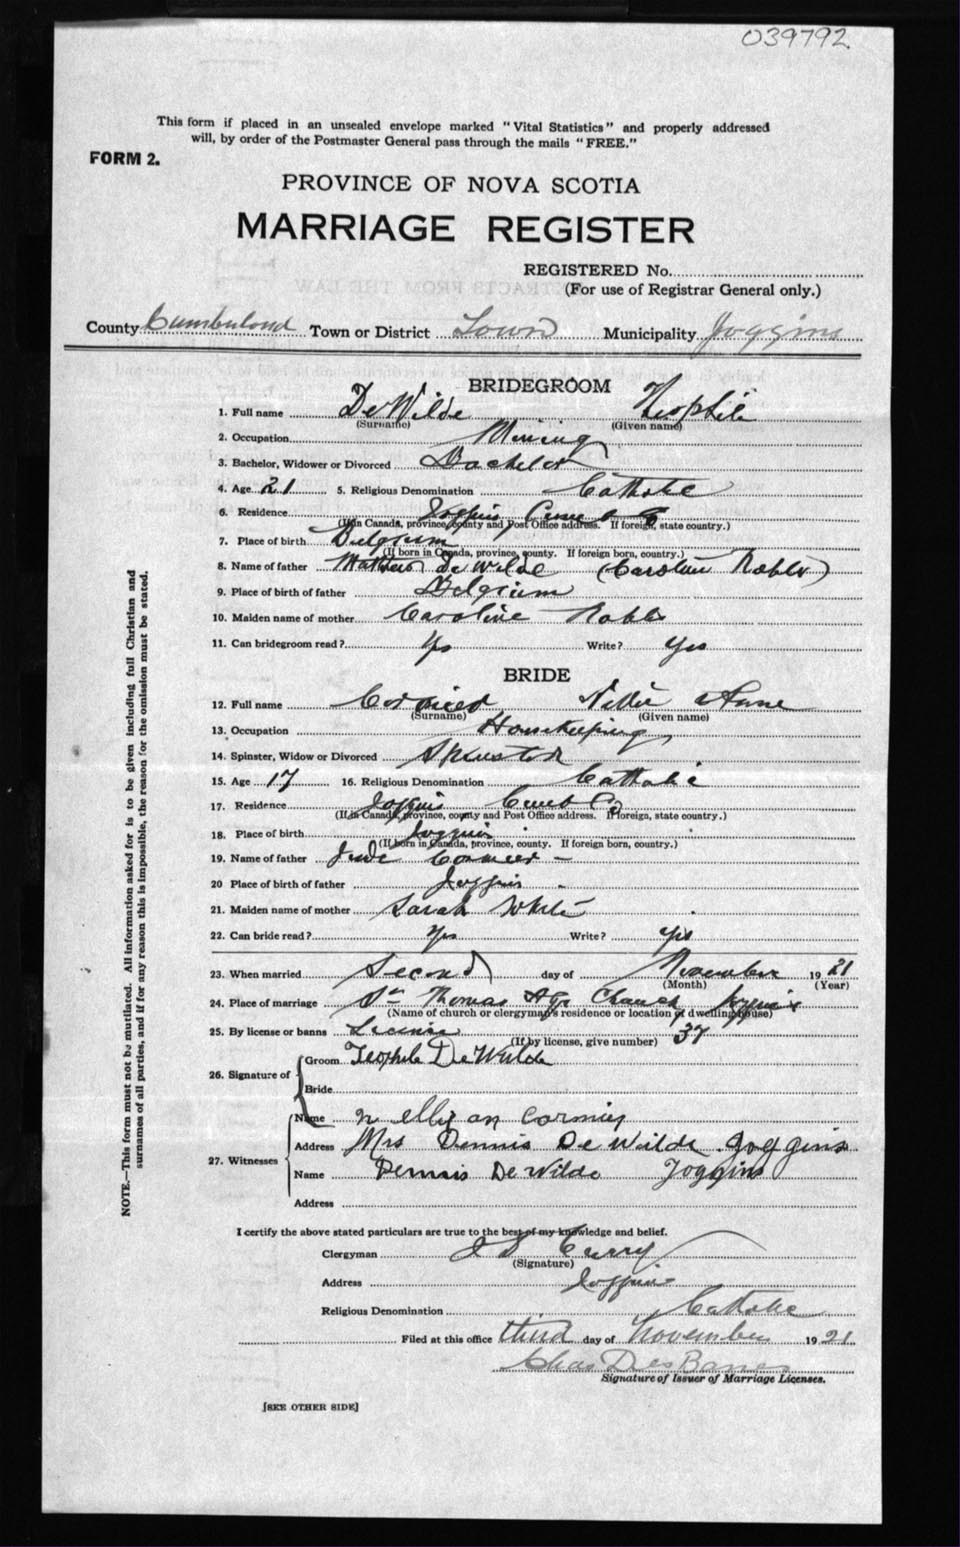 039792
This form if placed in an unsealed envelope marked "Vital Statistics" and properly addressed
will, by order of the Postmaster General pass through the mails "FREE."
FORM 2.
PROVINCE OF NOVA SCOTIA
MARRIAGE REGISTER
REGISTERED No.
(For use of Registrar General only.)
County Cumberland Town or District Town Municipality Joggins
BRIDEGROOM
1. Full name DeWilde Theophile
(Surname) (Given name)
2. Occupation Mining
3. Bachelor, Widower or Divorced Bachelor
4. Age 21 5. Religious Denomination Catholic
6. Residence Joggins Cumb Co
(If in Canada, province, county and Post Office address. If foreign, state country.)
7. Place of birth Belgium
(If born in Canada, province, county. If foreign born, country.)
8. Name of father De Wilde (Caroline
9. Place of birth of father Belgium
10. Maiden name of mother Caroline
11. Can bridegroom read? Yes Write? Yes
BRIDE
12. Full name Nellie Anne
(Surname) (Given name)
13. Occupation Housekeeping
14. Spinster, Widow or Divorced Spinster
15. Age 17 16. Religious Denomination Catholic
17. Residence Joggins Cumb Co
(If in Canada, province, county and Post Office address. If foreign, state country.)
18. Place of birth Joggins
(If born in Canada, province, county. If foreign born, country.)
19. Name of father Jude
20 Place of birth of father Joggins
21. Maiden name of mother Sarah White
22. Can bride read? Yes Write? yes
23. When married Second day of November 1921
(Month) (Year)
24. Place of marriage St Thomas Church Joggins
(Name of church or clergyman's residence or location of dwelling house)
25. By license or banns License (If by license, give number) 37
26. Signature of Groom Teophile De Wilde
Bride
27. Witnesses Name nelly an cormier
Address Mrs Dennis De Wilde Joggins
Name Dennis De Wilde Joggins
Address
I certify the above stated particulars are true to the best of my knowledge and belief.
Clergyman J S Curry
(Signature)
Address Joggins
Religious Denomination Catholic
Filed at this office third day of November 1921
Chas DesBarres
Signature of Issuer of Marriage Licenses.
[SEE OTHER SIDE]
NOTE.—This form must not be mutilated. All information asked for is to be given including full Christian and
surnames of all parties, and if for any reason this is impossible, the reason for the omission must be stated.